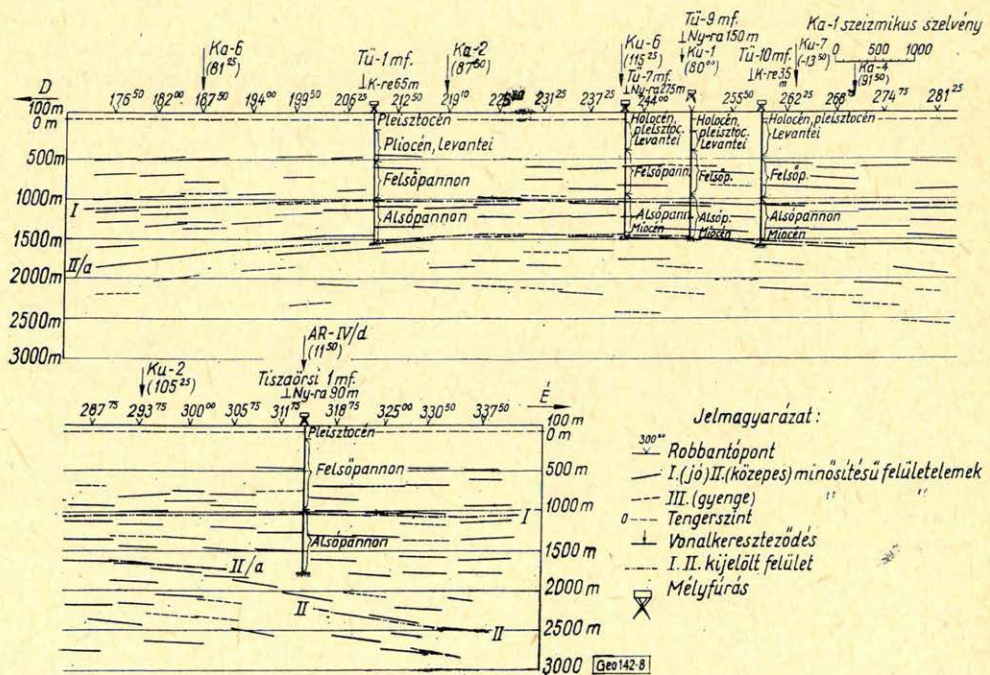 Tü-9 mf.
⊥Ny-ra 150 m
Ka-1 szeizmikus szelvény
Ka-6
(81²⁵)
Tü-1 mf.
⊥K-re 65m
Ka-2
(87⁵⁰)
Ku-6
(115²⁵)
Tü-7 mf.
⊥Ny-ra 275m
Ku-1
(80⁰⁰)
Tü-10 mf.
⊥K-re 35 m
Ku-7
(-13⁵⁰)
0 500 1000
Ka-4
(91⁵⁰)
D
176⁵⁰ 182⁰⁰ 187⁵⁰ 194⁰⁰ 199⁵⁰ 206²⁵ 212⁵⁰ 219¹⁰ 231²⁵ 237²⁵ 244⁰⁰ 255⁵⁰ 262²⁵ 268 274⁷⁵ 281²⁵
100m
0 m
500m
1000m
1500m
2000m
2500m
3000m
I
II/a
Pleisztocén
Pliocén, levantei
Felsőpannon
Alsópannon
Holocén,
pleisztoc.
Levantei
Felsőpann.
Alsópann.
Miocén
Holocén,
pleisztoc.
Levantei
Felsőp.
Alsóp.
Miocén
Holocén, pleisztocén
Levantei
Felsőp.
Alsópannon
Miocén
Ku-2
(105²⁵)
AR-IV/d
(11⁵⁰)
Tiszaörsi 1 mf.
⊥Ny-ra 90m
É
287⁷⁵ 293⁷⁵ 300⁰⁰ 305⁷⁵ 311⁷⁵ 318⁷⁵ 325⁰⁰ 330⁵⁰ 337⁵⁰
100 m
0 m
500 m
1000 m
1500 m
2000 m
2500 m
3000
Pleisztocén
Felsőpannon
Alsópannon
I
II/a
II
II
Geo 142-8
Jelmagyarázat:
300⁰⁰ Robbantópont
I.(jó) II.(közepes) minősítésű felületelemek
III. (gyenge) " "
0 Tengerszint
Vonalkereszteződés
I. II. kijelölt felület
Mélyfúrás